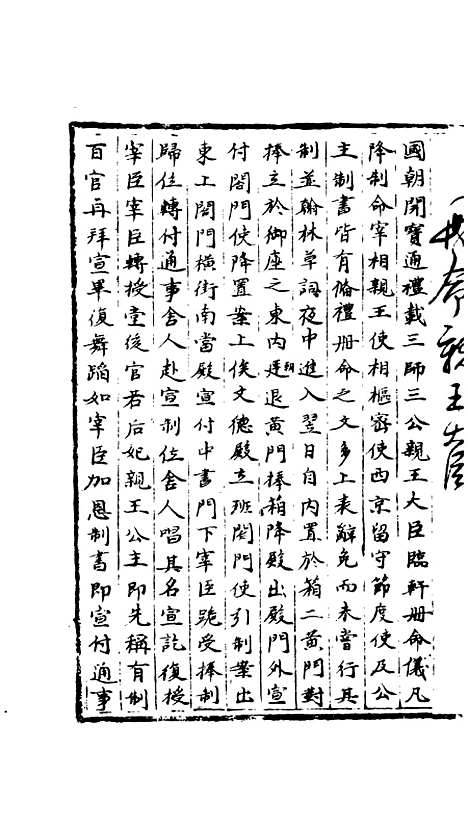 冊命親王大臣
國朝開寶通禮載三師三公親王大臣臨軒冊命儀凡
降制命宰相親王使相樞密使西京留守節度使及公
主制書皆有脩禮冊命之文多上表辭免而未嘗行其
制並翰林草詞夜中進入翌日自內置於箱二黃門對
捧立於御座之東內朝退黃門捧箱降殿出殿門外宣
付閤門使降置案上俟文德殿立班閤門使引制案出
東上閤門橫街南當殿宣付中書門下宰臣跪受捧制
歸位轉付通事舍人赴宣制位舍人唱其名宣訖復授
宰臣宰臣轉授堂後官若后妃親王公主即先稱有制
百官再拜宣畢復舞蹈如宰臣加恩制書即宣付通事